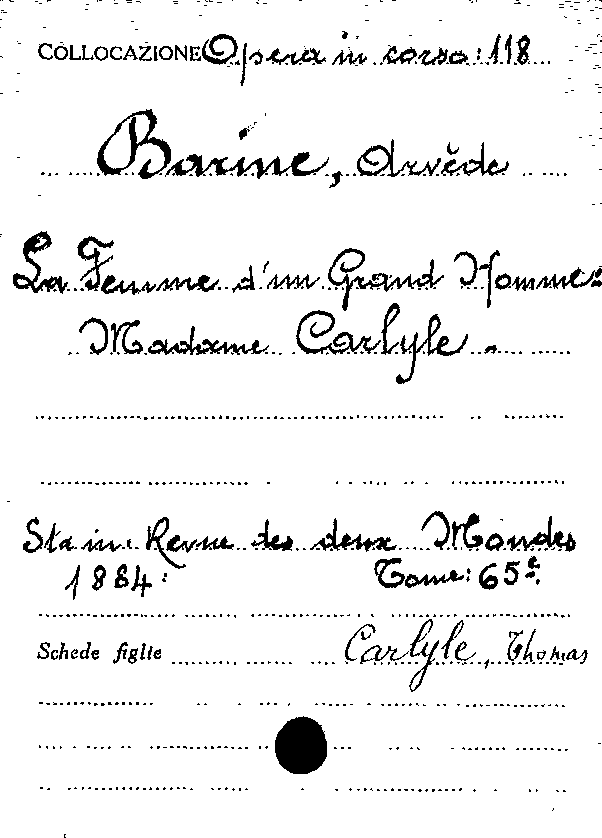 COLLOCAZIONE Opera in corso: 118
Barine, Arvède
La Femme d'un Grand Homme:
Madame Carlyle.
Sta in: Revue des deux Mondes
1884: Tome: 65e.
Schede figlie Carlyle, Thomas